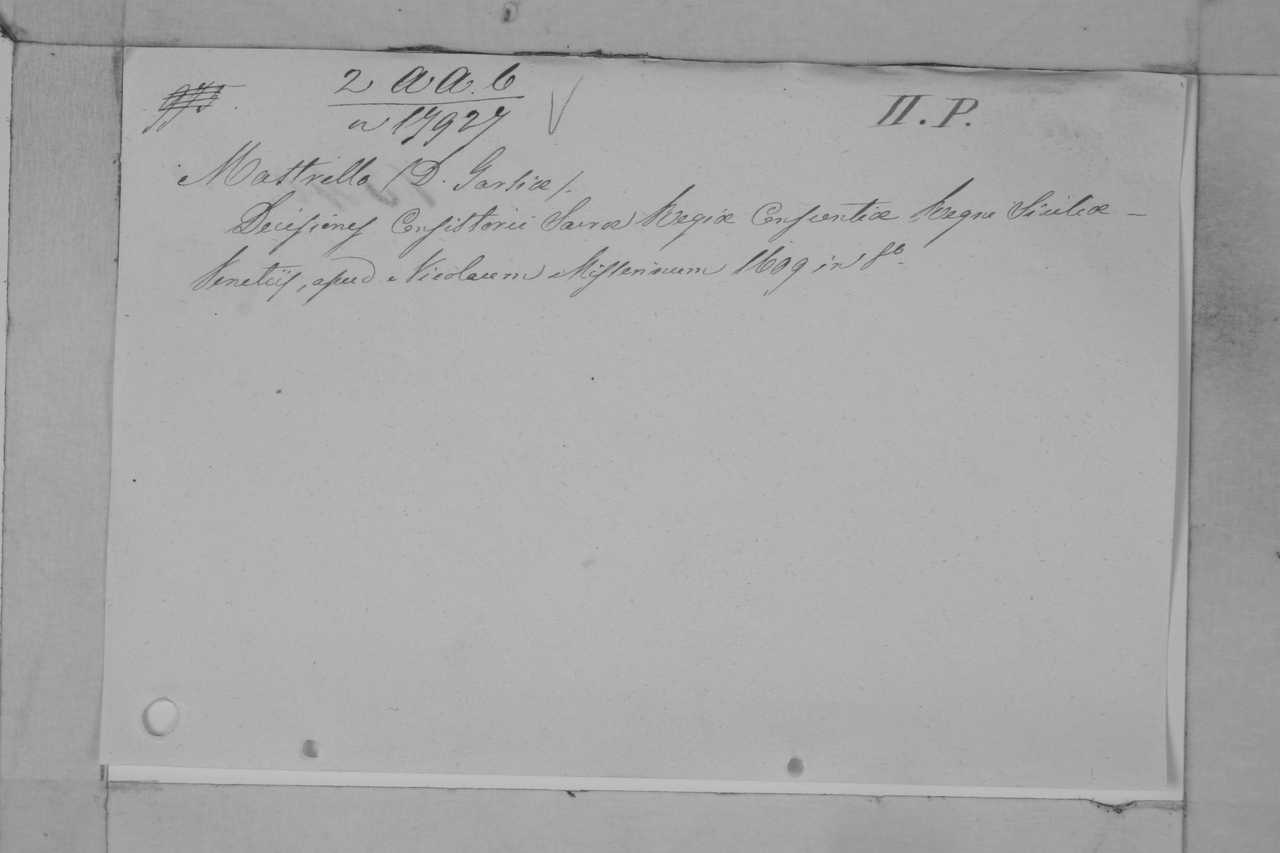 2 a a. 6
n 17927
II. P.
Mastrello (D. Garsiæ).
Decisiones Consistorii Sacræ Regiæ Conscientiæ Regni Siciliæ –
Venetiis, apud Nicolaum Misserinum 1609 in 8º.